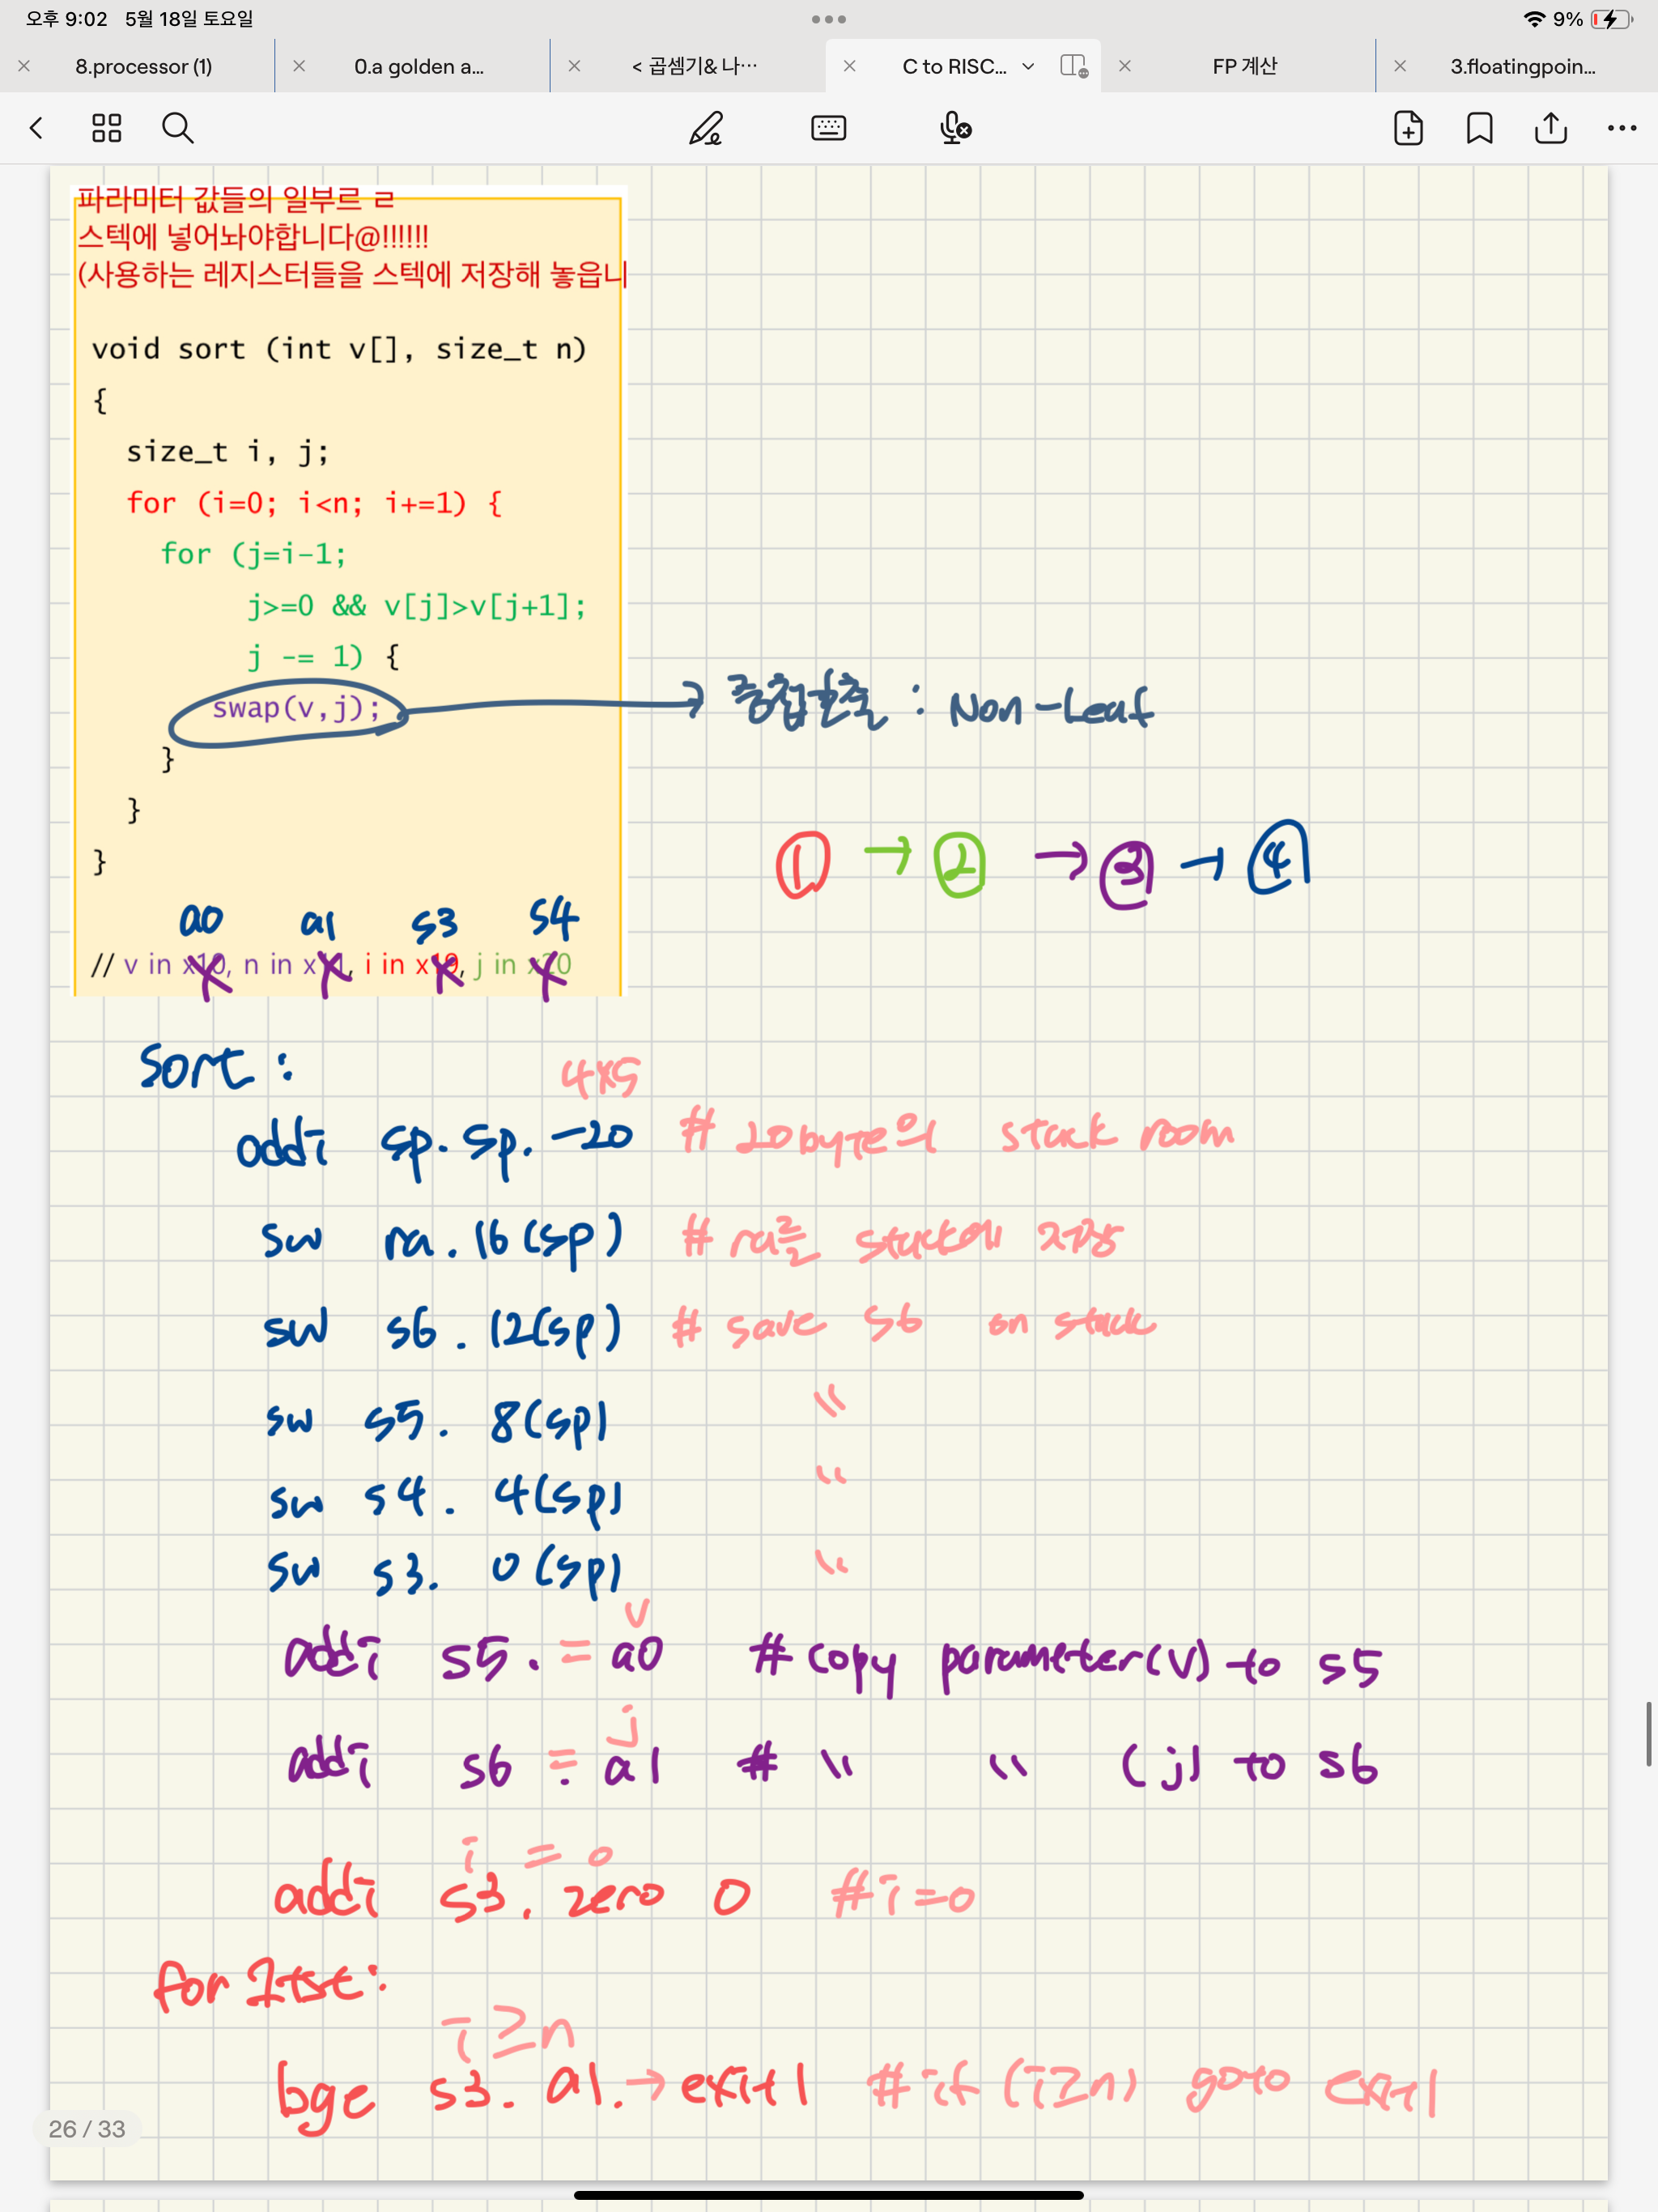 오후 9:02 5월 18일 토요일
9%
8.processor (1)
0.a golden a...
< 곱셈기& 나…
C to RISC...
FP 계산
3.floatingpoin...
파라미터 값들의 일부르 ㄹ
스텍에 넣어놔야합니다@!!!!!!
(사용하는 레지스터들을 스텍에 저장해 놓읍니
void sort (int v[], size_t n)
{
size_t i, j;
for (i=0; i<n; i+=1) {
for (j=i-1;
j>=0 && v[j]>v[j+1];
j -= 1) {
swap(v,j); → 중첩호출 : Non-Leaf
}
}
}
① → ② → ③ → ④
a0 a1 s3 s4
// v in x10, n in x11, i in x19, j in x20
Sort :
4×5
addi sp. sp. -20 # 20byte의 stack room
sw ra. 16(sp) # ra를 stack에 저장
sw s6. 12(sp) # save s6 on stack
sw s5. 8(sp) "
sw s4. 4(sp) "
sw s3. 0(sp) "
v
addi s5. = a0 # copy parameter(v) to s5
j
addi s6 = . a1 # " " (j) to s6
i = 0
addi s3. zero 0 # i=0
for1tst:
i ≥ n
bge s3. a1. → exit1 # if (i≥n) goto exit1
26 / 33